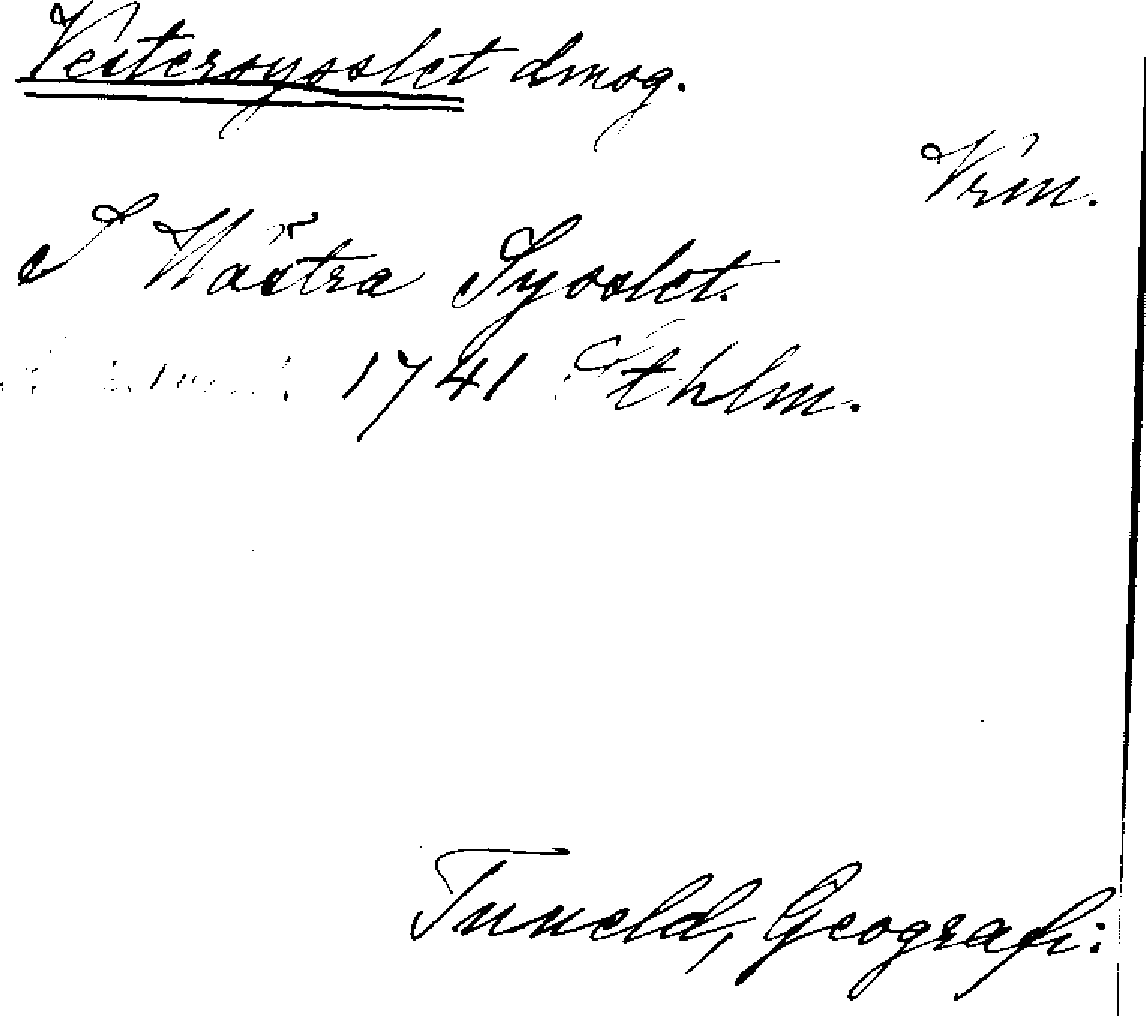 Vestersysslet dmog.
Vrm.
I Wästra Sysslet.
1741 Sthlm.
Tuneld, Geografi: